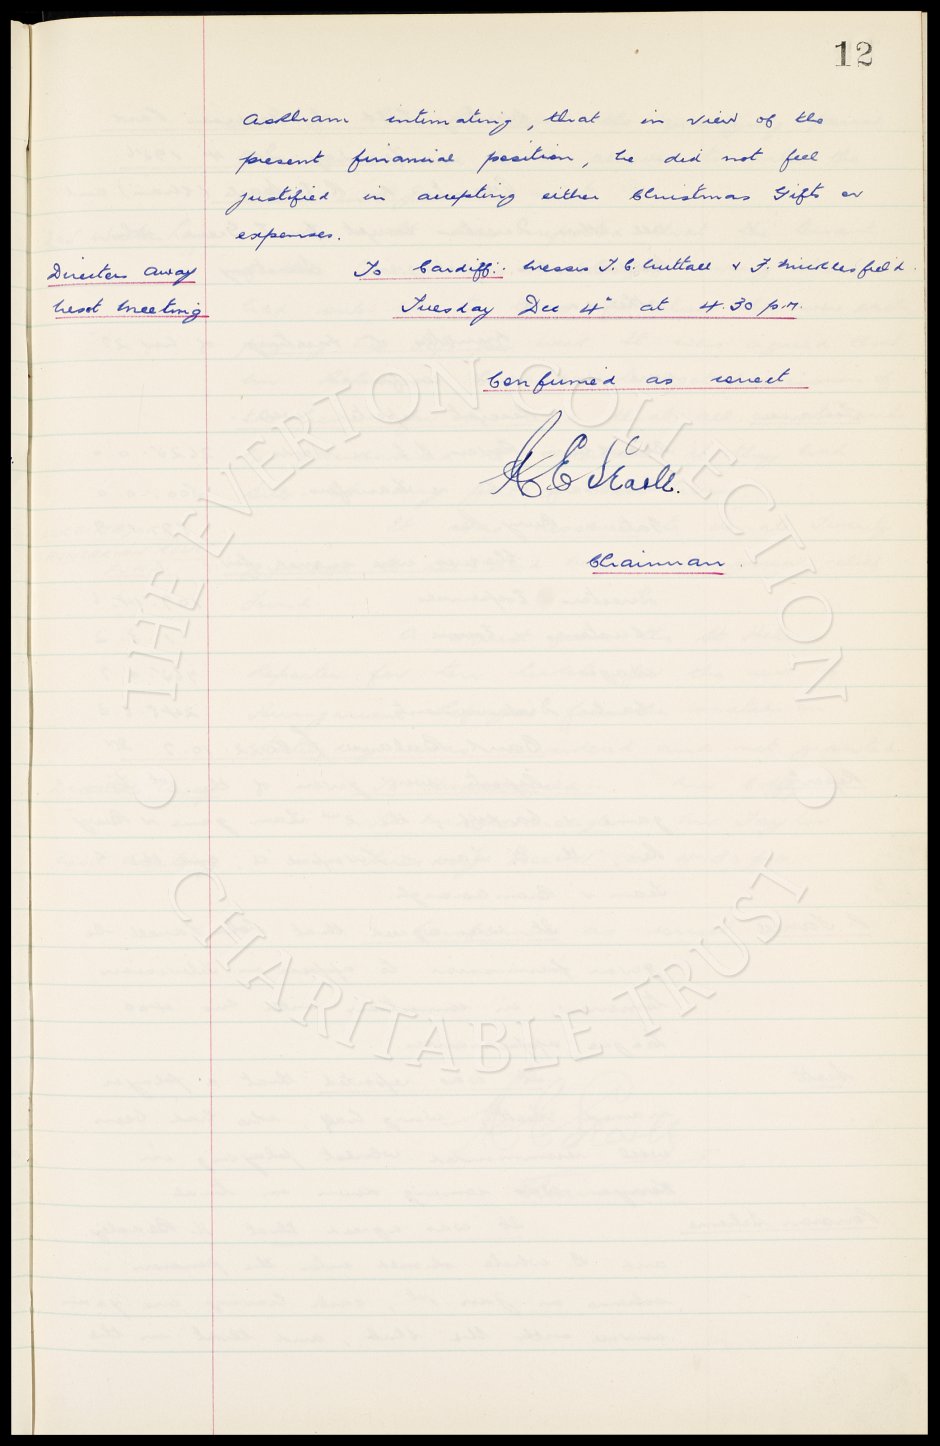 12
Askham intimating, that in view of the
present financial position, he did not feel
justified in accepting either Christmas Gifts or
expenses.
Directors away To Cardiff:- Messrs T. C. Nuttall & F. Micklesfield.
Next Meeting Tuesday Dec 4" at 4.30 p.m.
Confirmed as correct
Chairman.
THE EVERTON COLLECTION
CHARITABLE TRUST